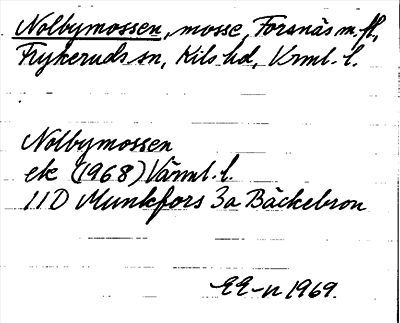 Nolbymossen, mosse, Forsnäs m. fl.,
Frykeruds sn, Kils hd, Vrml. l.
Nolbymossen
ek (1968) Värml. l.
11D Munkfors 3a Bäckebron
EE-n 1969.